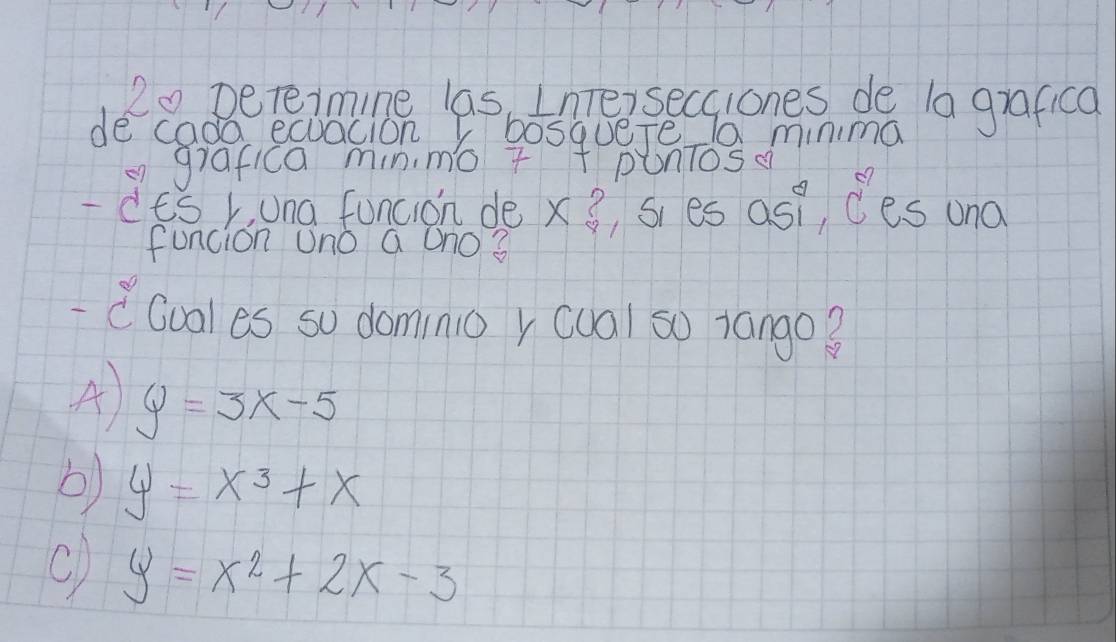 2. Determine las Intersecciones de la grafica
de cada ecuación y bosqueje la minima
grafica minimo 7 + puntos.
- ¿Es y, una función de x?, si es así, ¿es una
función uno a uno?
- ¿Cual es su dominio y cual su rango?
A) y = 3x - 5
b) y = x³ + x
C) y = x² + 2x - 3